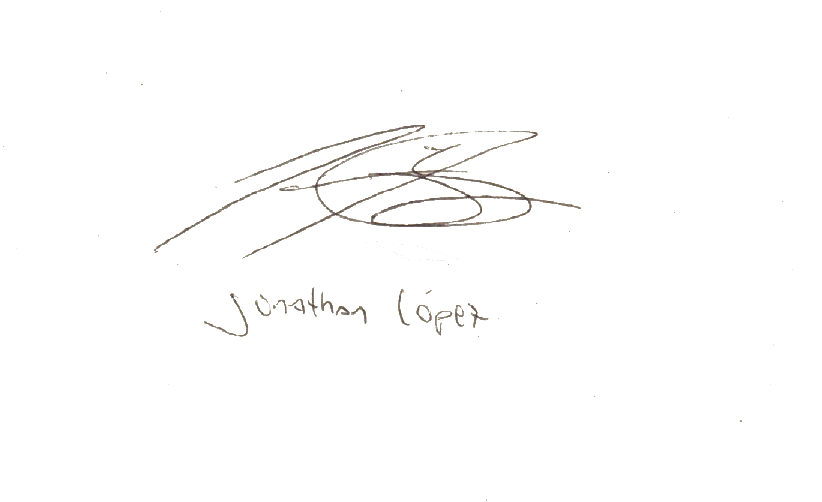 Jonathan López